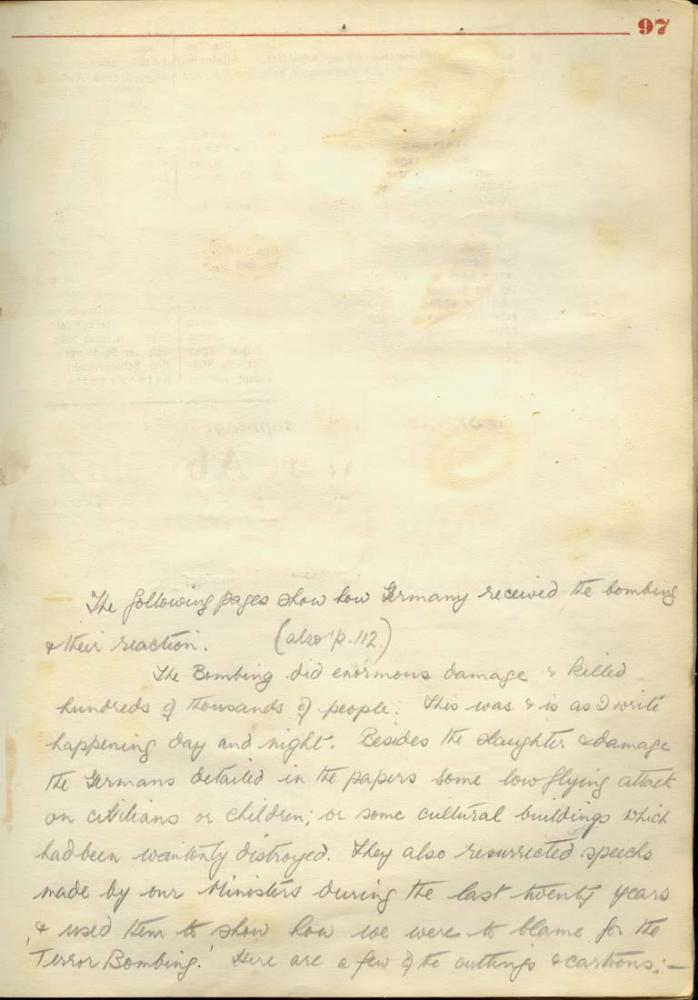 97
The following pages show how Germany received the bombing
& their reaction. (also p. 112)
The Bombing did enormous damage & killed
hundreds of thousands of people. This was & is as I write
happening day and night. Besides the slaughter & damage
the Germans detailed in the papers some low flying attack
on citilians or children; or some cultural buildings which
had been wantonly distroyed. They also resurrected speechs
made by our Ministers during the last twenty years
& used them to show how we were to blame for the
'Terror Bombing.' Here are a few of the cuttings & cartoons:—